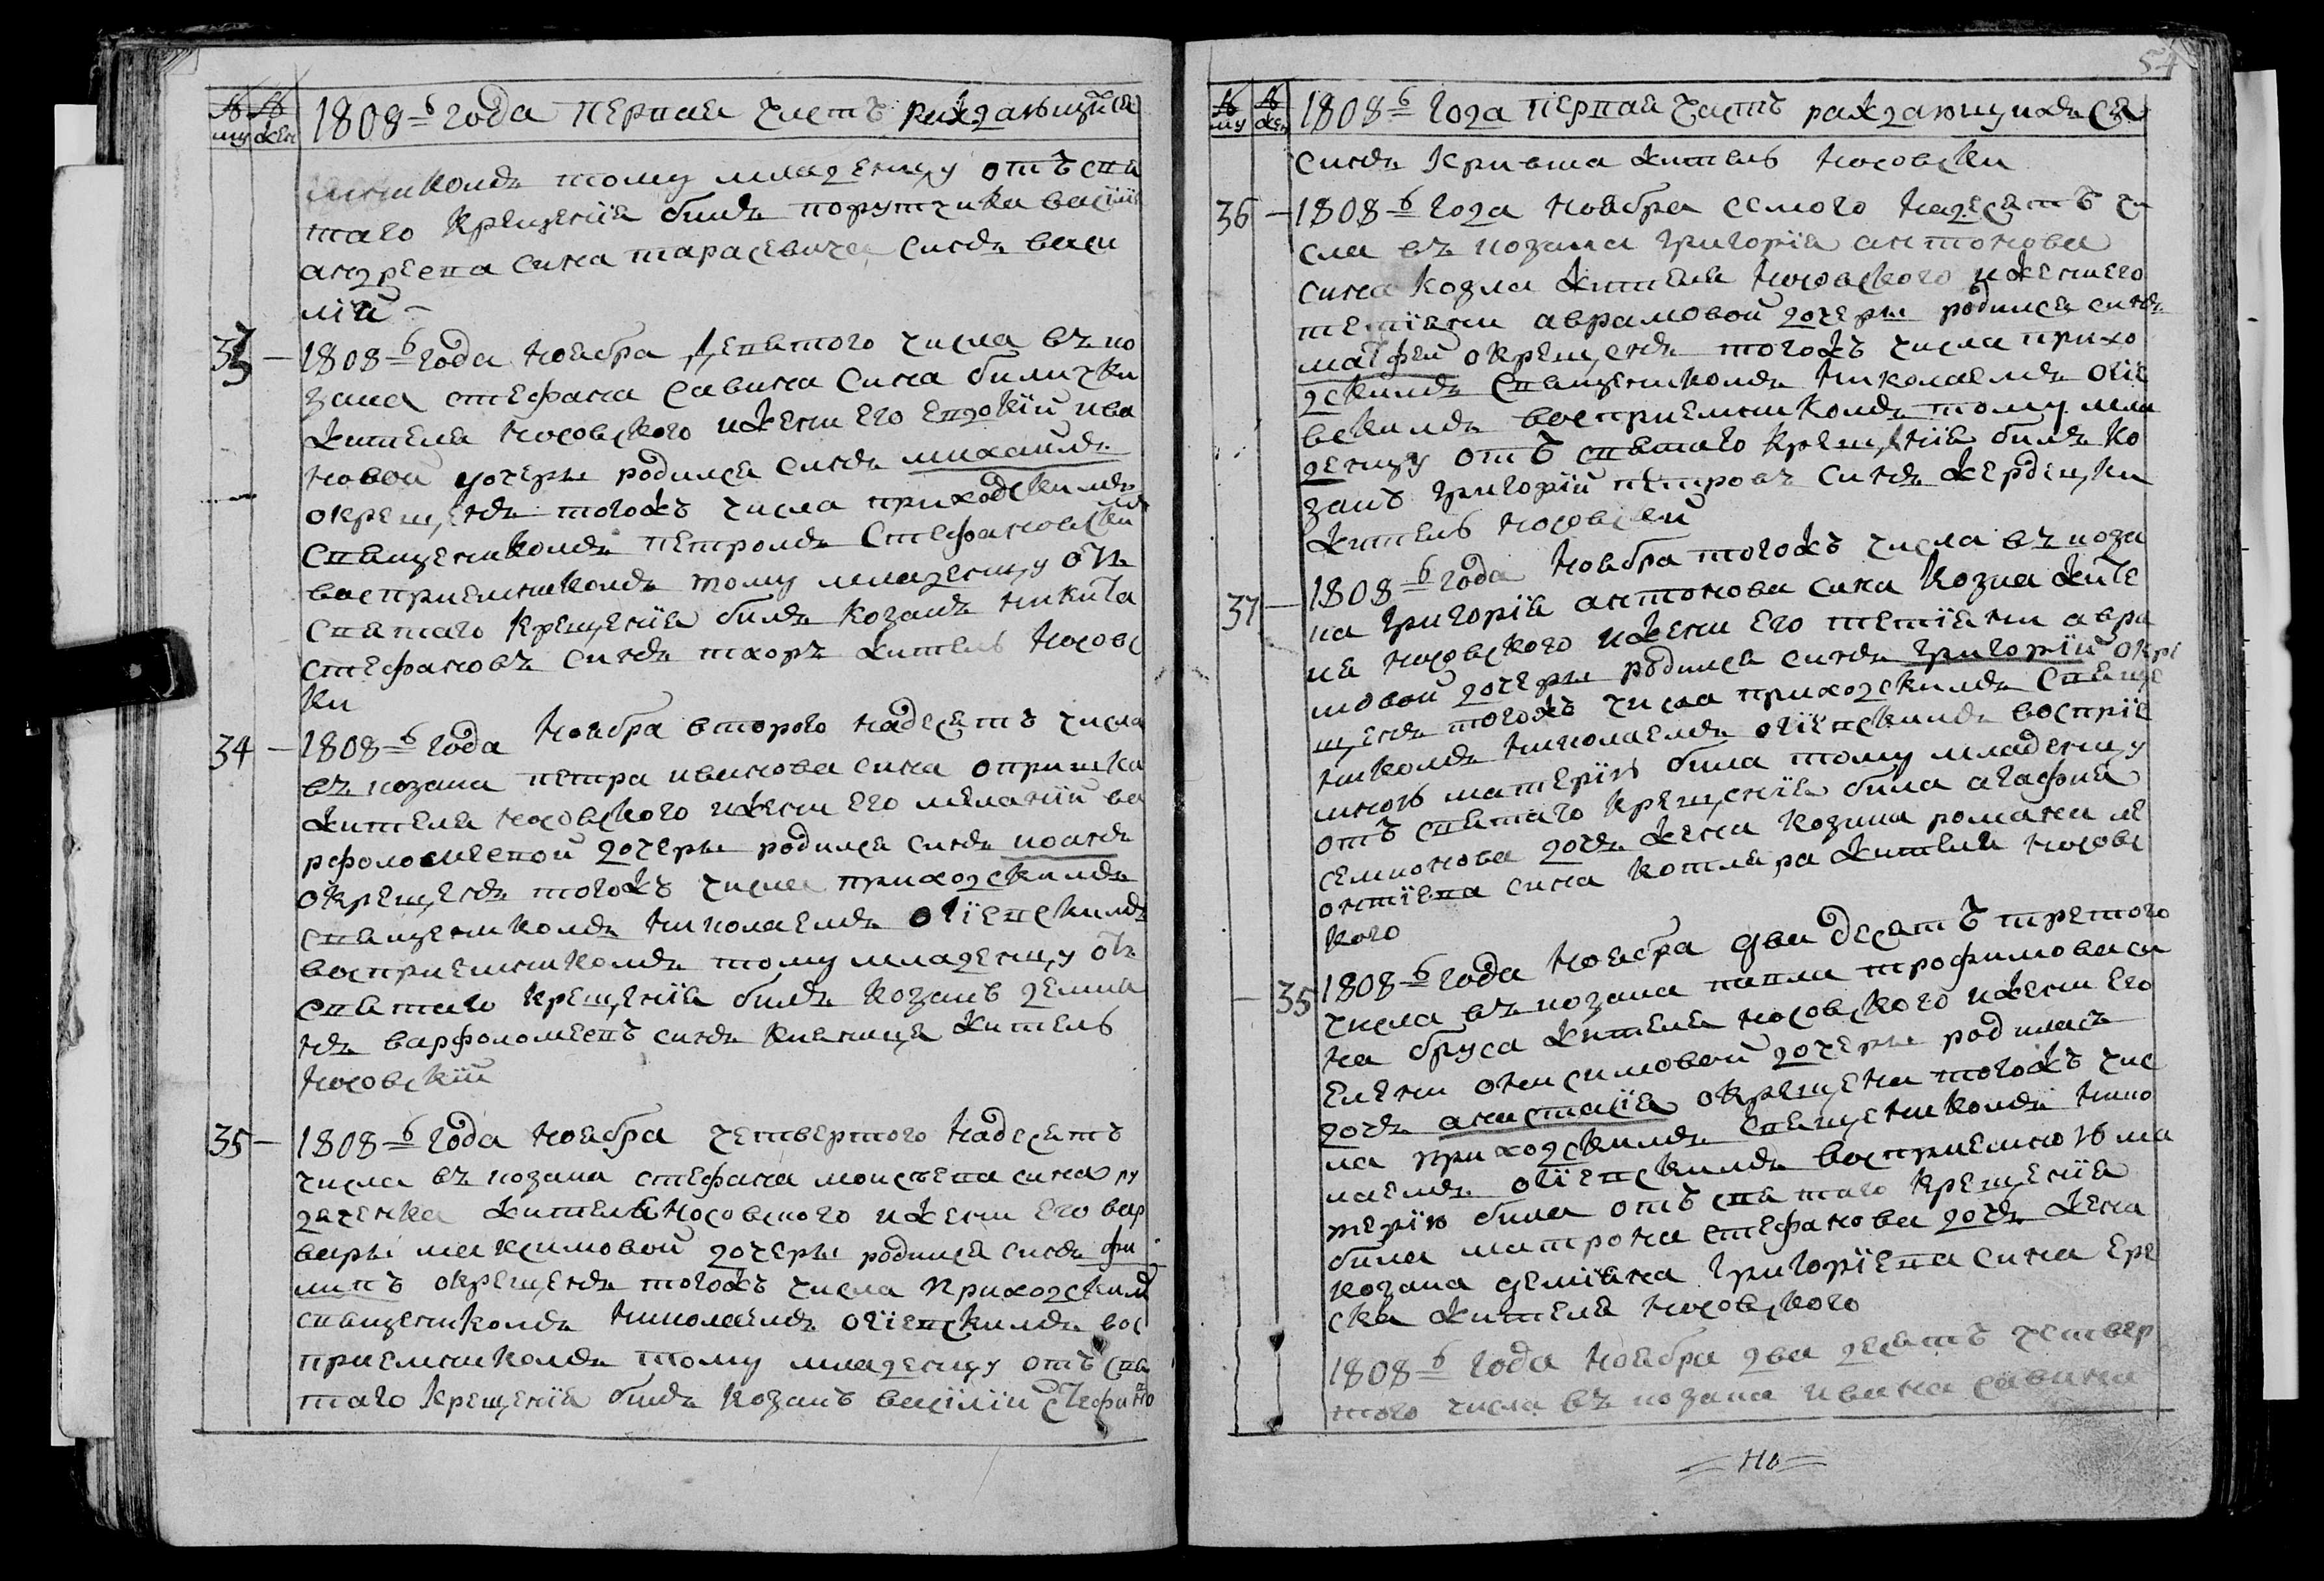 № № 1808 г года первая часть раждающихся
му жен
мником тому младенцу отъ свя
таго крещенїя билъ порутчика василїя
андреева сина тарасевича синъ васи
лїй
33 — 1808 г года ноября девятого числа въ ко
зака стефана савина сина билички
жителя носовского ижени его евдокїи ива
новой дочери родился синъ михаилъ
окрещенъ тогожъ числа приходскимъ
священикомъ петромъ стефановски
воспріемникомъ тому младенцу отъ
святаго крещенїя билъ козакъ никита
стефановъ синъ тхоръ житель носовс
ки
34 — 1808 г года ноября второго надесять числа
въ козака петра иванова сина опришка
жителя носовского ижени его меланїи ва
рфоломеевой дочери родился синъ иоанъ
окрещенъ тогожъ числа приходскимъ
священикомъ николаемъ огїевскимъ
воспріемникомъ тому младенцу отъ
святаго крещенїя билъ козакъ демия
нъ варфоломеевъ синъ княница житель
носовскїй
35 — 1808 г года ноября четвертого надесять
числа въ козака стефана моисеева сина ру
денка жителя носовского ижени его вар
вари максимовой дочери родился синъ фи
липъ окрещенъ тогожъ числа приходским
священикомъ николаемъ огїевскимъ вос
пріемникомъ тому младенцу отъ свя
таго крещенїя билъ козакъ василїй стефано
54
№ № 1808 г года первая часть раждающихся
му жен
синъ кривша житель носовски
36 — 1808 г года ноября семого надесять чи
сла въ козака григорїя антонова
сина козла жителя носовского ижени его
тетїяни аврамовой дочери родился синъ
матфей окрещенъ тогожъ числа прихо
дскимъ священикомъ николаемъ огїе
вскимъ воспріемникомъ тому мла
денцу отъ святаго крещенїя билъ ко
закъ григорїй петровъ синъ жердецки
житель носовскй
37 — 1808 г года ноября тогожъ числа въ коза
ка григорїя антонова сина козла жите
ля носовского ижени его тетїяни авра
мовой дочери родился синъ григорїй окре
щенъ тогожъ числа приходскимъ священ
никомъ николаемъ огїевскимъ воспріе
мною матерїю била тому младенцу
отъ святаго крещенїя била агафия
семионова дочъ жена козака романа ле
онтїева сина котляра жителя носовс
кого
— 35 1808 г года ноября двадесять третого
числа въ козака павла трофимова си
на бруса жителя носовского ижени его
елени онисимовой дочери родилась
дочъ анистасїя окрещена тогожъ чис
ла приходскимъ священикомъ нико
лаемъ огїевскимъ воспріемною ма
терїю била отъ святаго крещенїя
била матрона стефанова дочъ жена
козака демїяна григорїева сина ере
ска жителя носовского
1808 г года ноября двадесять четвер
того числа въ козака ивана савина
но